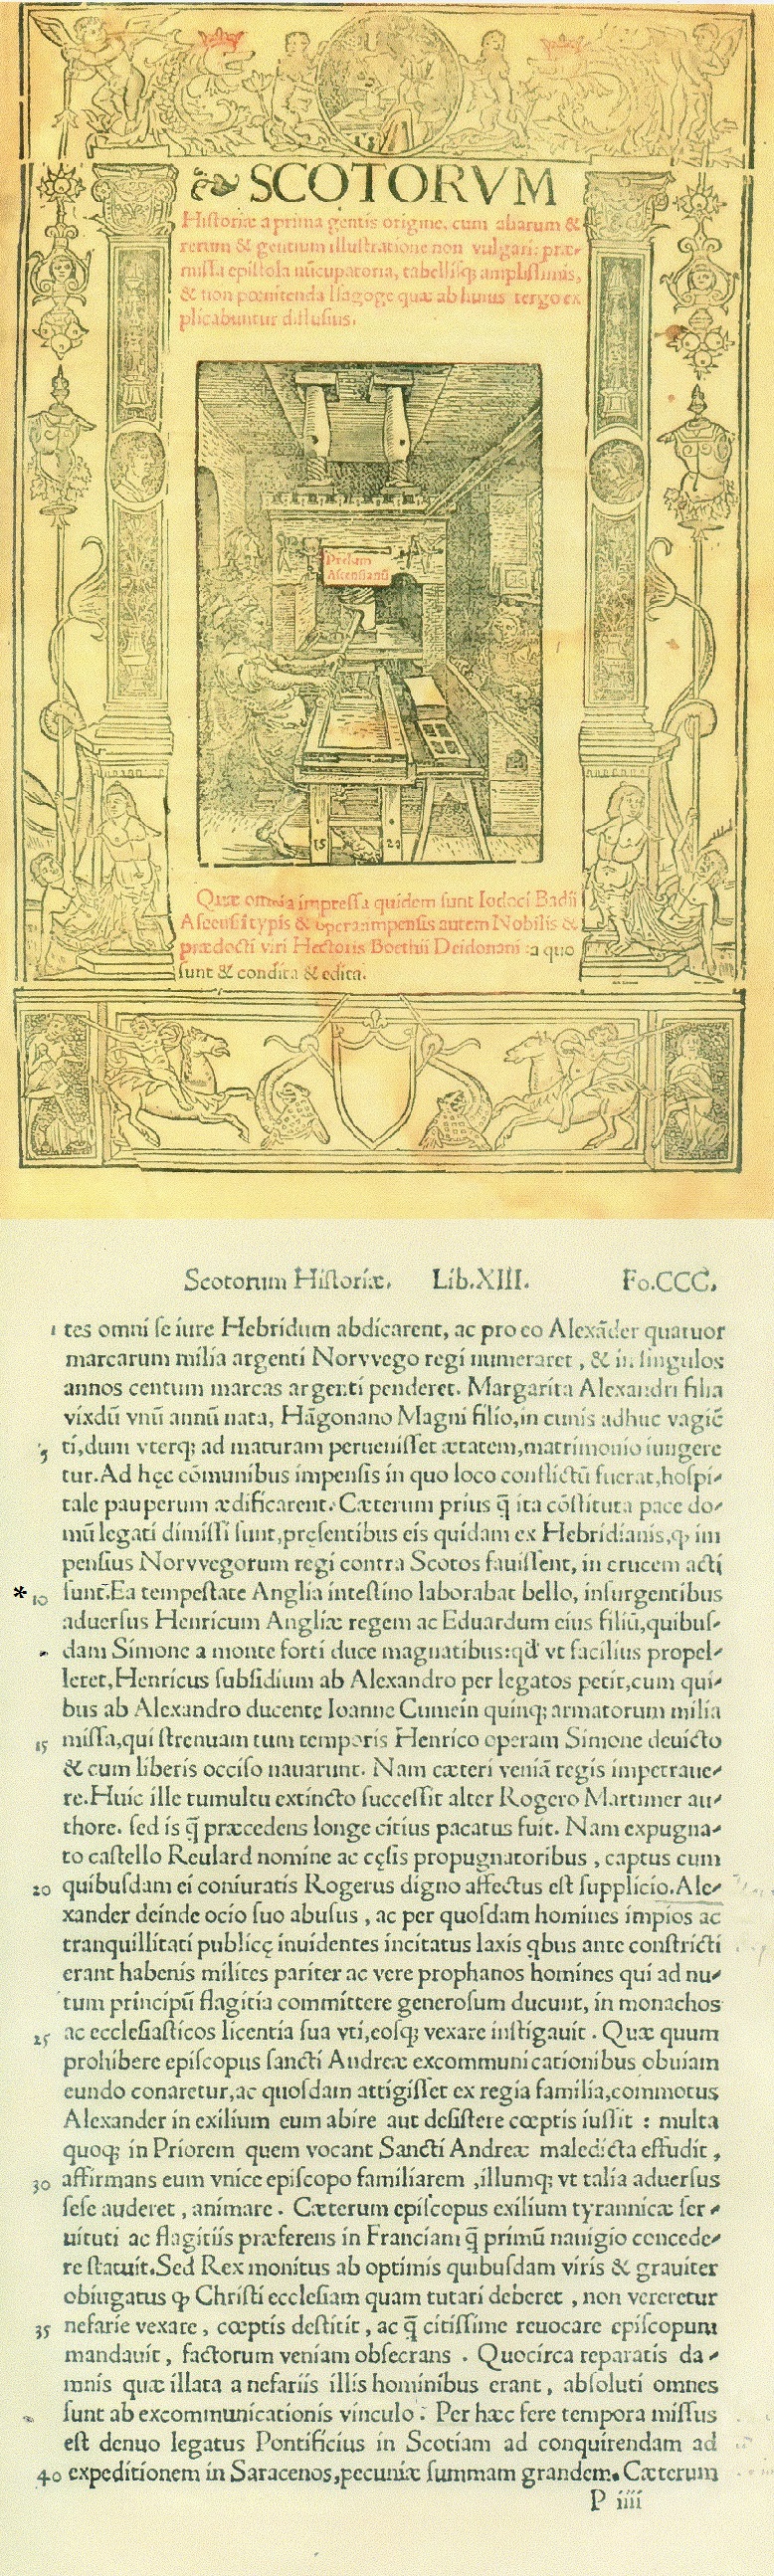 SCOTORVM
Historiæ a prima gentis origine, cum aliarum &
rerum & gentium illustratione non vulgari: præ-
missa epistola nũcupatoria, tabellisq; amplissimis,
& non pœnitenda Isagoge quæ ab huius tergo ex
plicabuntur diffusius.
Prelum
Ascensianũ
15 21
Quæ omnia impressa quidem sunt Iodoci Badii
Ascensii typis & opera: impensis autem Nobilis &
prædocti viri Hectoris Boethii Deidonani: a quo
sunt & condita & edita.
Scotorum Historiæ. Lib.XIII. Fo.CCC.
1 tes omni se iure Hebridum abdicarent, ac pro eo Alexãder quatuor
marcarum milia argenti Norvvego regi numeraret, & in singulos
annos centum marcas argenti penderet. Margarita Alexandri filia
vixdũ vnũ annũ nata, Hãgonano Magni filio, in cunis adhuc vagiẽ
5 ti, dum vterq; ad maturam peruenisset ætatem, matrimonio iungere
tur. Ad hęc cõmunibus impensis in quo loco conflictũ fuerat, hospi-
tale pauperum ædificarent. Cæterum prius q̃ ita cõstituta pace do-
mũ legati dimissi sunt, pręsentibus eis quidam ex Hebridianis, ꝙ im
pensius Norvvegorum regi contra Scotos fauissent, in crucem acti
* 10 sunt. Ea tempestate Anglia intestino laborabat bello, insurgentibus
aduersus Henricum Angliæ regem ac Eduardum eius filiũ, quibus-
dam Simone a monte forti duce magnatibus: qd̃ vt facilius propel-
leret, Henricus subsidium ab Alexandro per legatos petit, cum qui-
bus ab Alexandro ducente Ioanne Cumein quinq; armatorum milia
15 missa, qui strenuam tum temporis Henrico operam Simone deuicto
& cum liberis occiso nauarunt. Nam cæteri veniã regis impetraue-
re. Huic ille tumultu extincto successit alter Rogero Martimer au-
thore. sed is q̃ præcedens longe citius pacatus fuit. Nam expugna-
to castello Reulard nomine ac cęsis propugnatoribus, captus cum
20 quibusdam ei coniuratis Rogerus digno affectus est supplicio. Ale-
xander deinde ocio suo abusus, ac per quosdam homines impios ac
tranquillitati publicę inuidentes incitatus laxis qbus ante constricti
erant habenis milites pariter ac vere prophanos homines qui ad nu-
tum principũ flagitia committere generosum ducunt, in monachos
25 ac ecclesiasticos licentia sua vti, eosq; vexare instigauit. Quæ quum
prohibere episcopus sancti Andreæ excommunicationibus obuiam
eundo conaretur, ac quosdam attigisset ex regia familia, commotus
Alexander in exilium eum abire aut desistere cœptis iussit: multa
quoq; in Priorem quem vocant Sancti Andreæ maledicta effudit,
30 affirmans eum vnice episcopo familiarem, illumq; vt talia aduersus
sese auderet, animare. Cæterum episcopus exilium tyrannicæ ser-
uituti ac flagitiis præferens in Franciam q̃ primũ nauigio concede-
re statuit. Sed Rex monitus ab optimis quibusdam viris & grauiter
obiurgatus ꝙ Christi ecclesiam quam tutari deberet, non vereretur
35 nefarie vexare, cœptis destitit, ac q̃ citissime reuocare episcopum
mandauit, factorum veniam obsecrans. Quocirca reparatis da-
mnis quæ illata a nefariis illis hominibus erant, absoluti omnes
sunt ab excommunicationis vinculo: Per hæc fere tempora missus
est denuo legatus Pontificius in Scotiam ad conquirendam ad
40 expeditionem in Saracenos, pecuniæ summam grandem. Cæterum
P iiii